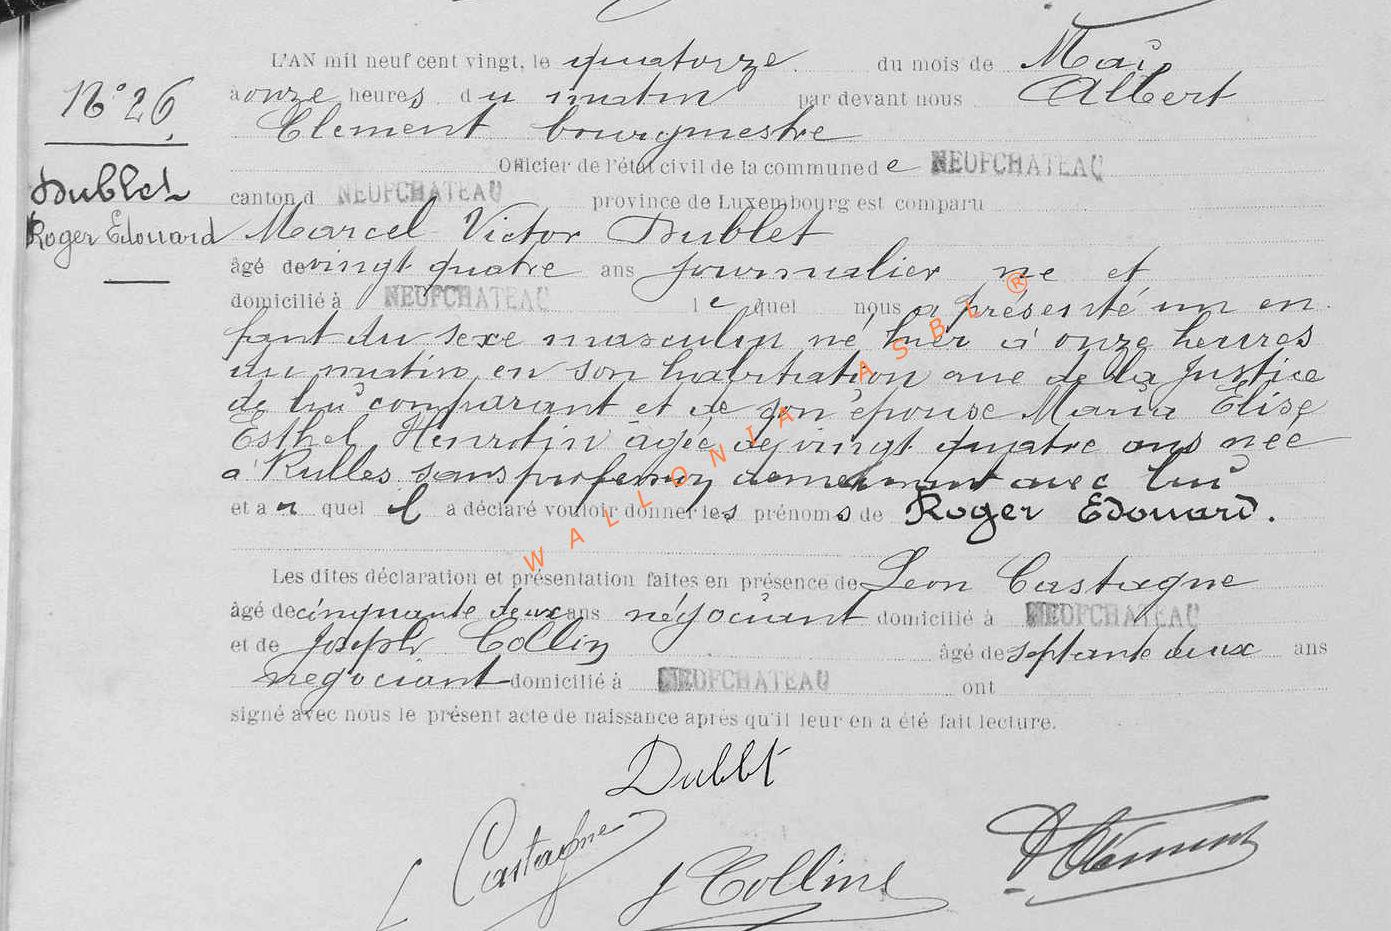 L'AN mil neuf cent vingt, le quatorze du mois de Mai
à onze heures du matin par devant nous Albert
Clement bourgmestre
Officier de l'état civil de la commune de NEUFCHATEAU
N° 26
canton d NEUFCHATEAU province de Luxembourg est comparu
Dublet
Roger Edouard
Marcel Victor Dublet
âgé de vingt quatre ans journalier né et
domicilié à NEUFCHATEAU lequel nous a présenté un en
fant du sexe masculin né hier à onze heures
du matin en son habitation rue de la Justice
de lui comparant et de son épouse Maria Elise
Esthel Henrotin âgée de vingt quatre ans née
a Rulles sans profession demeurant avec lui
et a quel il a déclaré vouloir donner les prénoms de Roger Edouard.
Les dites déclaration et présentation faites en présence de Leon Castagne
âgé de cinquante deux ans négociant domicilié à NEUFCHATEAU
et de Joseph Collin âgé de septante deux ans
negociant domicilié à NEUFCHATEAU ont
signé avec nous le présent acte de naissance après qu'il leur en a été fait lecture.
Dublet
L Castagne
J Collin
A Clement
WALLONIA ASBL ®